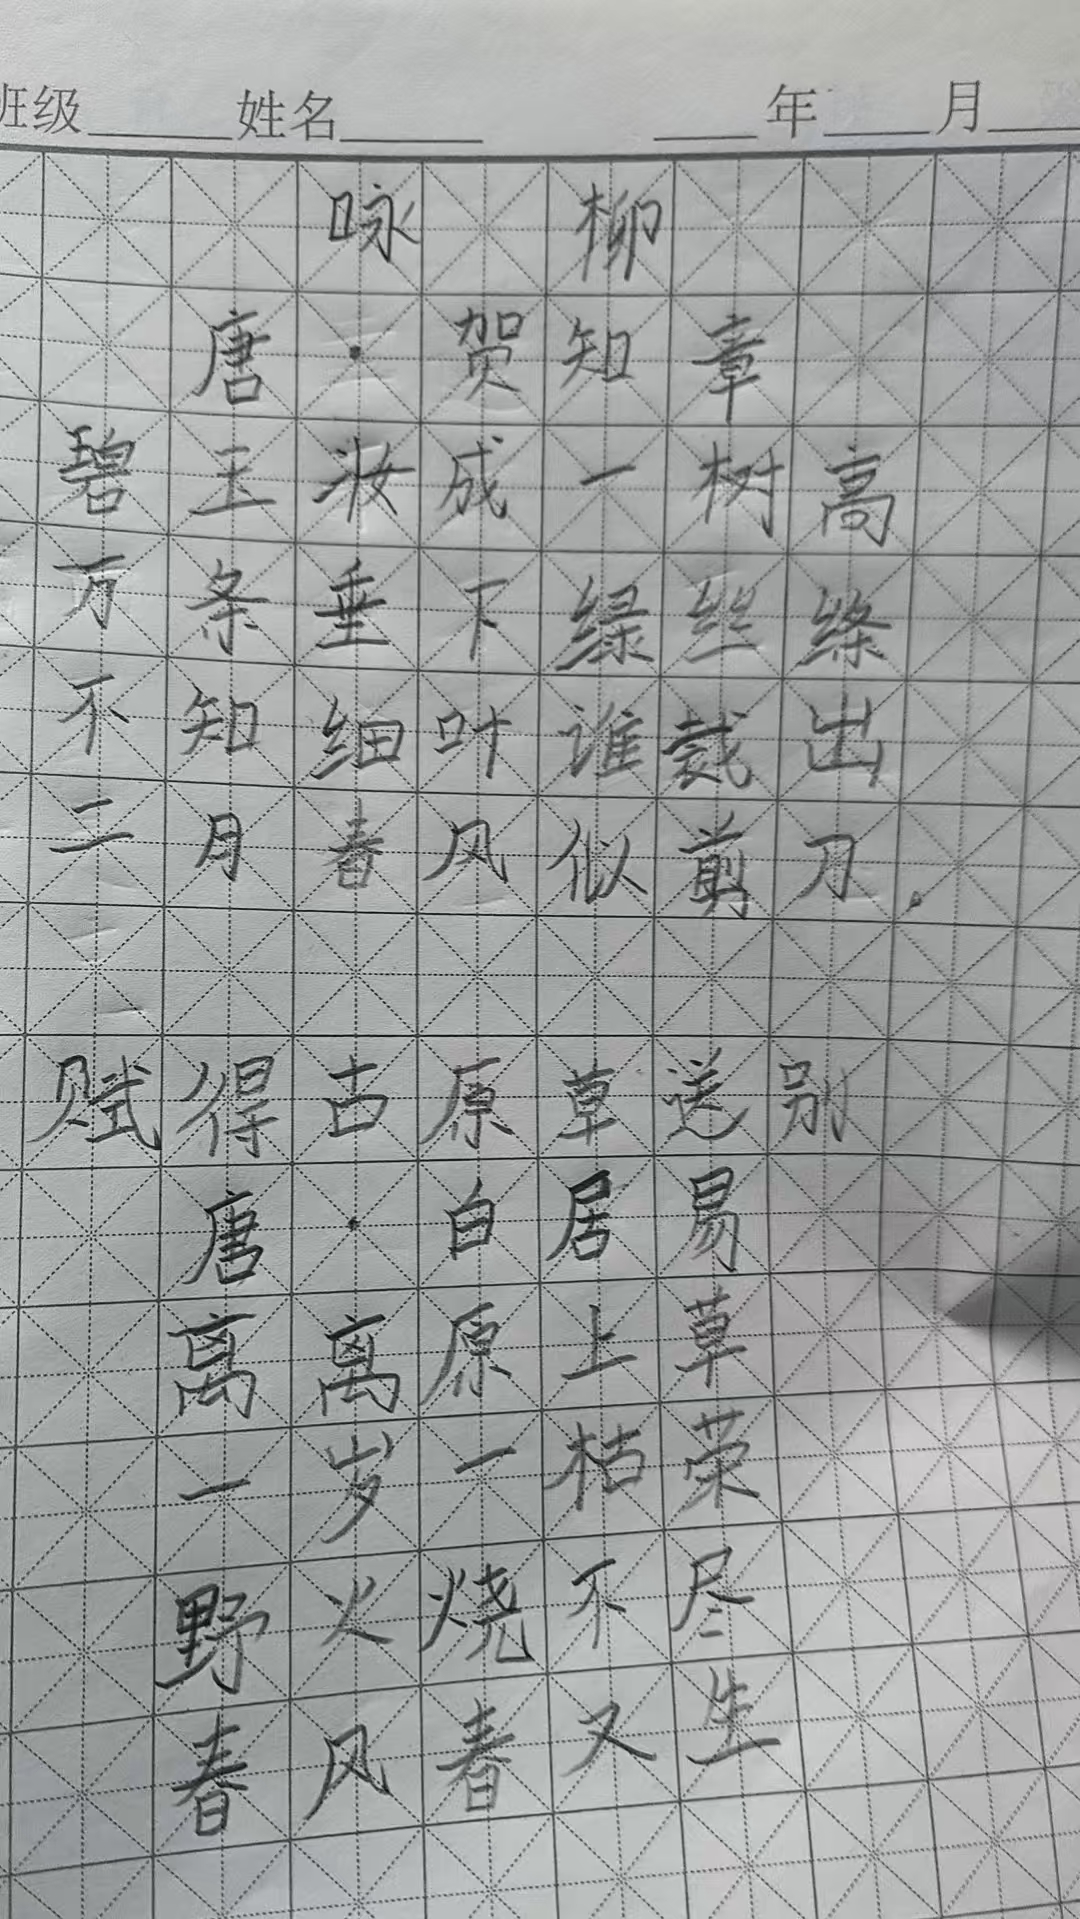 班级 姓名 年 月
咏柳
唐·贺知章
碧玉妆成一树高
万条垂下绿丝绦
不知细叶谁裁出
二月春风似剪刀.
赋得古原草送别
唐·白居易
离离原上草
一岁一枯荣
野火烧不尽
春风春又生